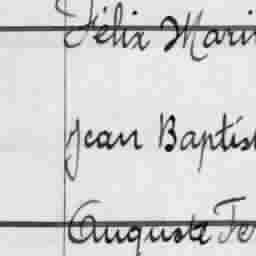 Félix Mari
Jean Baptis
Auguste Fe